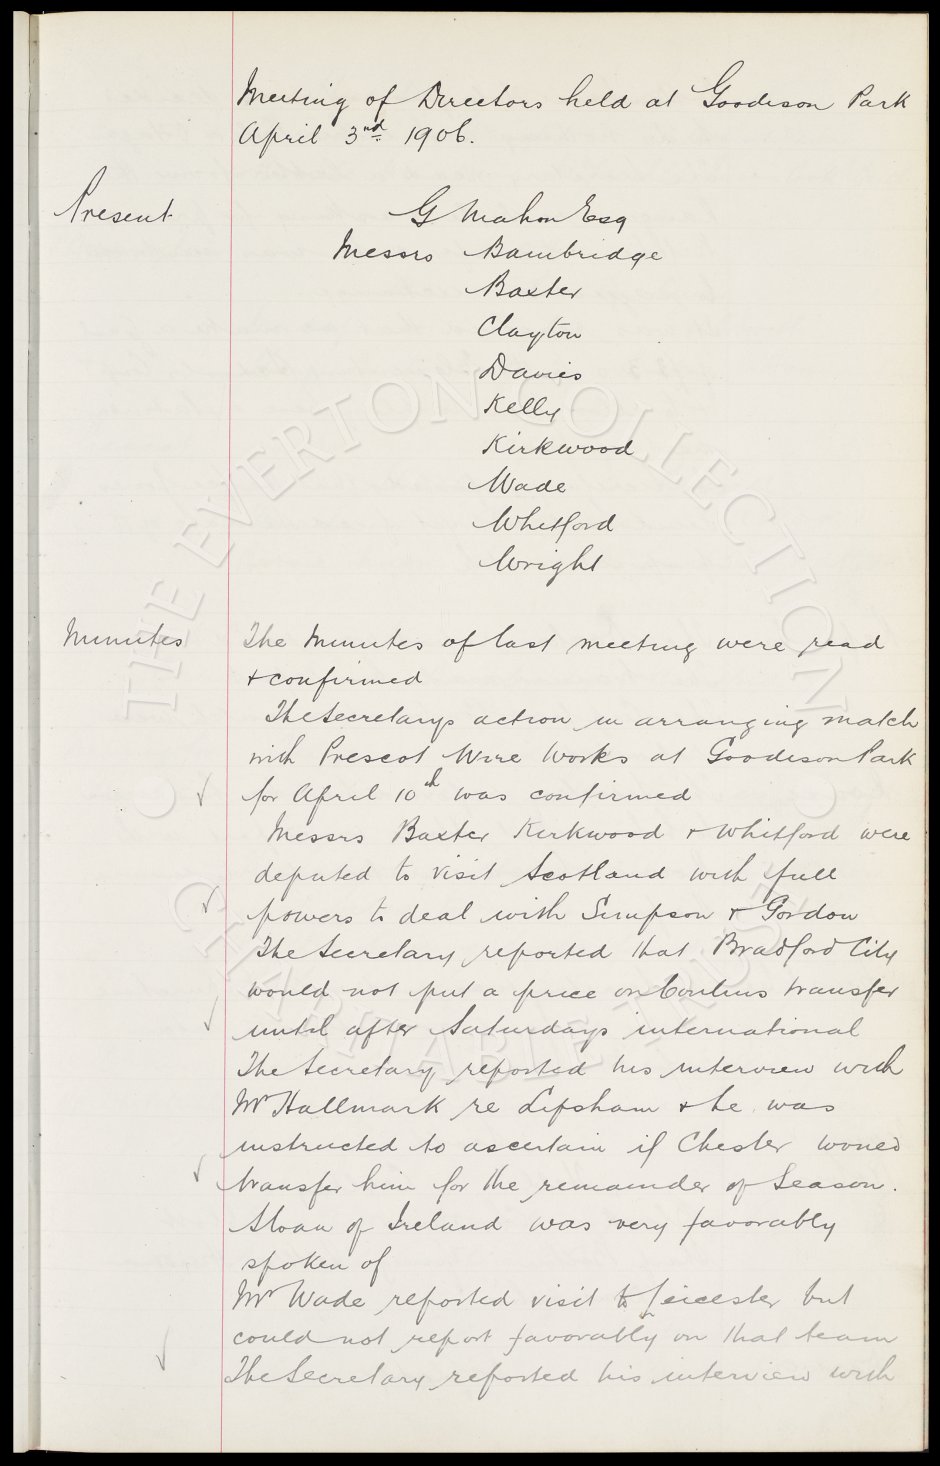 Meeting of Directors held at Goodison Park
April 3rd 1906.
Present
G Mahon Esq
Messrs Bambridge
Baxter
Clayton
Davies
Kelly
Kirkwood
Wade
Whitford
Wright
Minutes
The Minutes of last meeting were read
& confirmed
The Secretarys action in arranging match
with Prescot Wire Works at Goodison Park
for April 10th was confirmed
Messrs Baxter Kirkwood & Whitford were
deputed to visit Scotland with full
powers to deal with Simpson & Gordon
The Secretary reported that Bradford City
would not put a price on Conlins transfer
until after Saturdays international
The Secretary reported his interview with
Mr Hallmark re Lipsham & he was
instructed to ascertain if Chester would
transfer him for the remainder of Season.
Sloan of Ireland was very favorably
spoken of
Mr Wade reported visit to Leicester but
could not report favorably on that team
The Secretary reported his interview with
© THE EVERTON COLLECTION
CHARITABLE TRUST